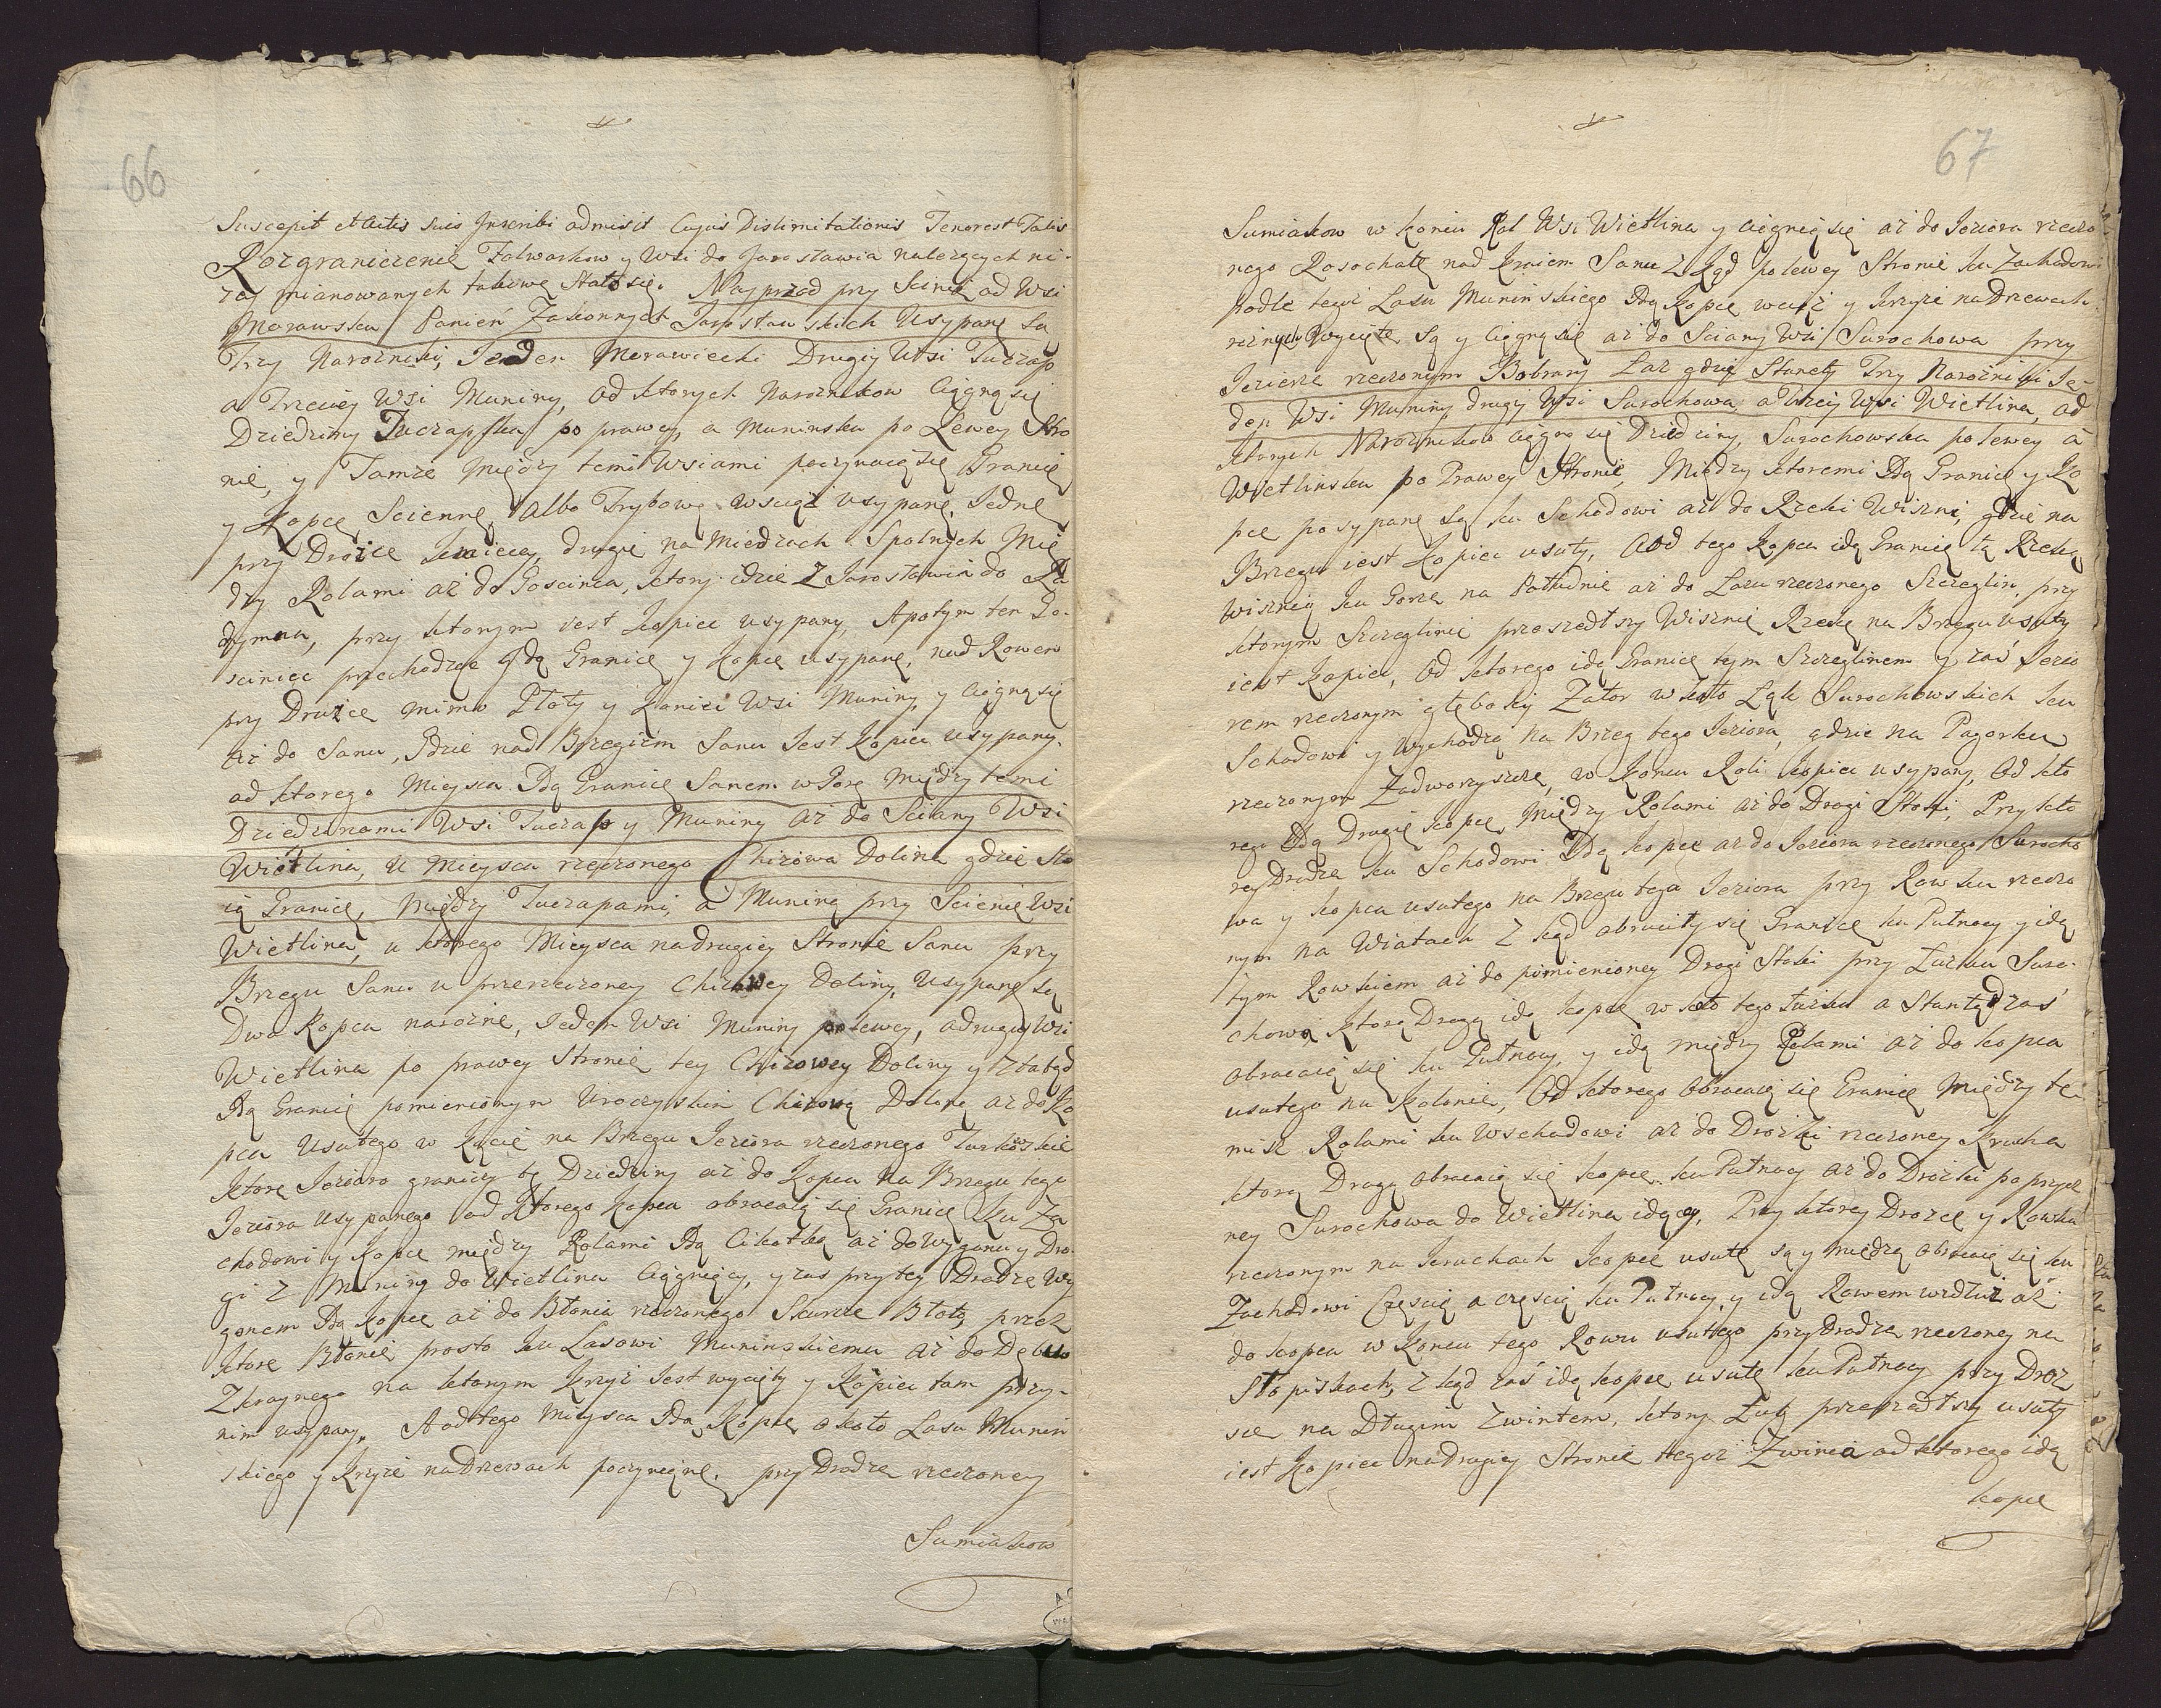 66
Suscepit et Actis suis Inscribi admisit Cujus Dislimitationis Tenor est Talis
Rozgraniczenie Folwarkow y Wsi do Jarosławia należących ni-
zey mianowanych takowe Stało się. Nayprzod przy Scinie od Wsi
Morawska Panień Zakonnych Jarosławskich Usypane są
Trzy Narożniki, Jeden Morawiecki Drugiy Wsi Tuczap
a Trzeciey Wsi Muniny, od ktorych Narożnikow ciągną się
Dziedziny Tuczapska po prawey, a Muninska po Lewey Stro
nie, y Tamże między temi Wsiami poczynaią się Granice
y Kopce Scienne, albo Trybowe wsciąż usypane, Jedne
przy Drożce drugie na Miedzach Spolnych Mię
dzy Rolami aż do Goscinca, ktory idzie z Jarosławia do Ra
dymna, przy ktorym iest Kopiec usypany, Apotym ten Go-
sciniec przechodząc Idą Granice y Kopce usypane, nad Rowem
przy Drużce mimo Płoty y Koniec Wsi Muniny, y ciągną się
aż do Sanu, Gdzie nad Brzegiem Sanu Jest Kopiec usypany.
od ktorego Mieysca Idą Granice Sanem w Gorę między temi
Dziedzinami Wsi Tuczap y Muniny aż do Sciany Wsi
Wietlina, u Mieysca rzeczonego Chizowa Dolina gdzie sto
ią Granice, między Tuczapami, a Muniną przy Scienie Wsi
Wietlina, u ktorego Mieysca na drugiey Stronie Sanu przy
Brzegu Sanu u przerzeczoney Chizowey Doliny, Usypane są
Dwa Kopca narożne, Jeden Wsi Muniny po lewey, a drugi Wsi
Wietlina po prawey Stronie tey Chizowey Doliny y ztąbąd
Idą Granice pomienionym Uroczyskim Chizową Doliną aż do Ko
pca Usutego w Kącie na Brzegu Jeziora rzeczonego
ktore Jezioro graniczy te Dziedziny aż do Kopca na Brzegu tego
Jeziora usypanego od ktorego Kopca obracaią się Granice ku Za
chodowi y Kopce między Rolami Idą aż do Wygonu y Dro
gi z Muniny do Wietlina ciągnący, y zas przy tey Drodze Wy
gonem Idą Kopce aż do Błonia rzeczonego Skurcze Błota, przez
ktore Błonie prosto ku Lasowi Muninskiemu aż do Dębu
Zkraynego na ktorym Krzyż Jest wycięty y Kopiec tam przy
nim usypany, A od tego Mieysca Idą Kopce około Lasu Munin
skiego y Krzyże na Drzewach poczynione. przy Drodze rzeczoney
Sumiakow
67
Sumiakow w koncu Rol Wsi Wietlina y ciągnie się aż do Jeziora rzeczo
nego Rosochate nad Krajem Sanu z kąd po lewey Stronie ku Zachodowi
podle tegoż Lasu Muninskiego Idą Kopce wciąż y krzyże na Drzewach
rożnych Wycięte są y ciągną się aż do Sciany Wsi Surochowa przy
Jezierze rzeczonym Bobrowy Łaz gdzie Stanęły Trzy Narożniki Je-
den Wsi Muniny drugi Wsi Surochowa, a trzeci Wsi Wietlina, od
ktorych Narożnikow ciągną się Dziedziny, Surochowska po lewey a
Wietlinska po Prawey Stronie, Między ktoremi Idą Granice y Ko
pce posypane są ku Schodowi aż do Rzeki Wiszni, gdzie na
Brzegu iest Kopiec usuty, A od tego Kopca idą Granice tą Rzeką
Wisznią ku Gorze na Południe aż do Łazu rzeczonego Szczeglin, przy
ktorym Szczeglinie przeszedłszy Wisznię Rzekę na Brzegu usuty
iest Kopiec, Od ktorego idą Granice tym Szczeglinem y zaś Jezio
rem rzeczonym głęboki Zator wkoło Łąk Surochowskich ku
Schodowi y Wychodzą na Brzeg tego Jeziora, gdzie na Pagorku
rzeczonym Zadworzyszcze, w Koncu Roli kopiec usypany, Od kto
rego Idą Drugie kopce, Między Rolami aż do Drogi Stoki, Przy kto
rey Drodze ku Schodowi Idą kopce aż do Jeziora rzeczonego Surocho
wa y kopca usutego na Brzegu tego Jeziora przy Rowku rzeczo
nym na Wiatach z kąd obrocity się Granice ku Pułnocy y idą
tym Rowkiem aż do pomienioney Drogi Stoki przy Łużku Suro-
chowa, ktorą Drogą idą kopce w koło tego Łużku a Stamtąd zaś
obracaią się ku Pułnocy y idą między Rolami aż do kopca
usutego na Kolonie, Od ktorego obracaią się Granice Między te
miż Rolami ku Wschodowi aż do Drożki rzeczoney Krucha
ktorą Drogą obracaią się kopce ku Pułnocy aż do Drożki poprzecz
ney Surochowa do Wietlina idący, Przy ktorey Drożce y Rowku
rzeczonym na kruchach kopce usute są y miedzą obracaią się ku
Zachodowi Częscią a częscią ku Pułnocy, y idą Rowem wzdłuż aż
do kopca w koncu tego Rowu usutego przy Drodze rzeczoney na
Stopiskach, z kąd zaś idą kopce usute ku Pułnocy przy Droż
sce na Długim Zwintem, ktory Ług przeszedłszy usuty
iest Kopiec na drugiey Stronie tegoż Zwinia od ktorego idą
kopce